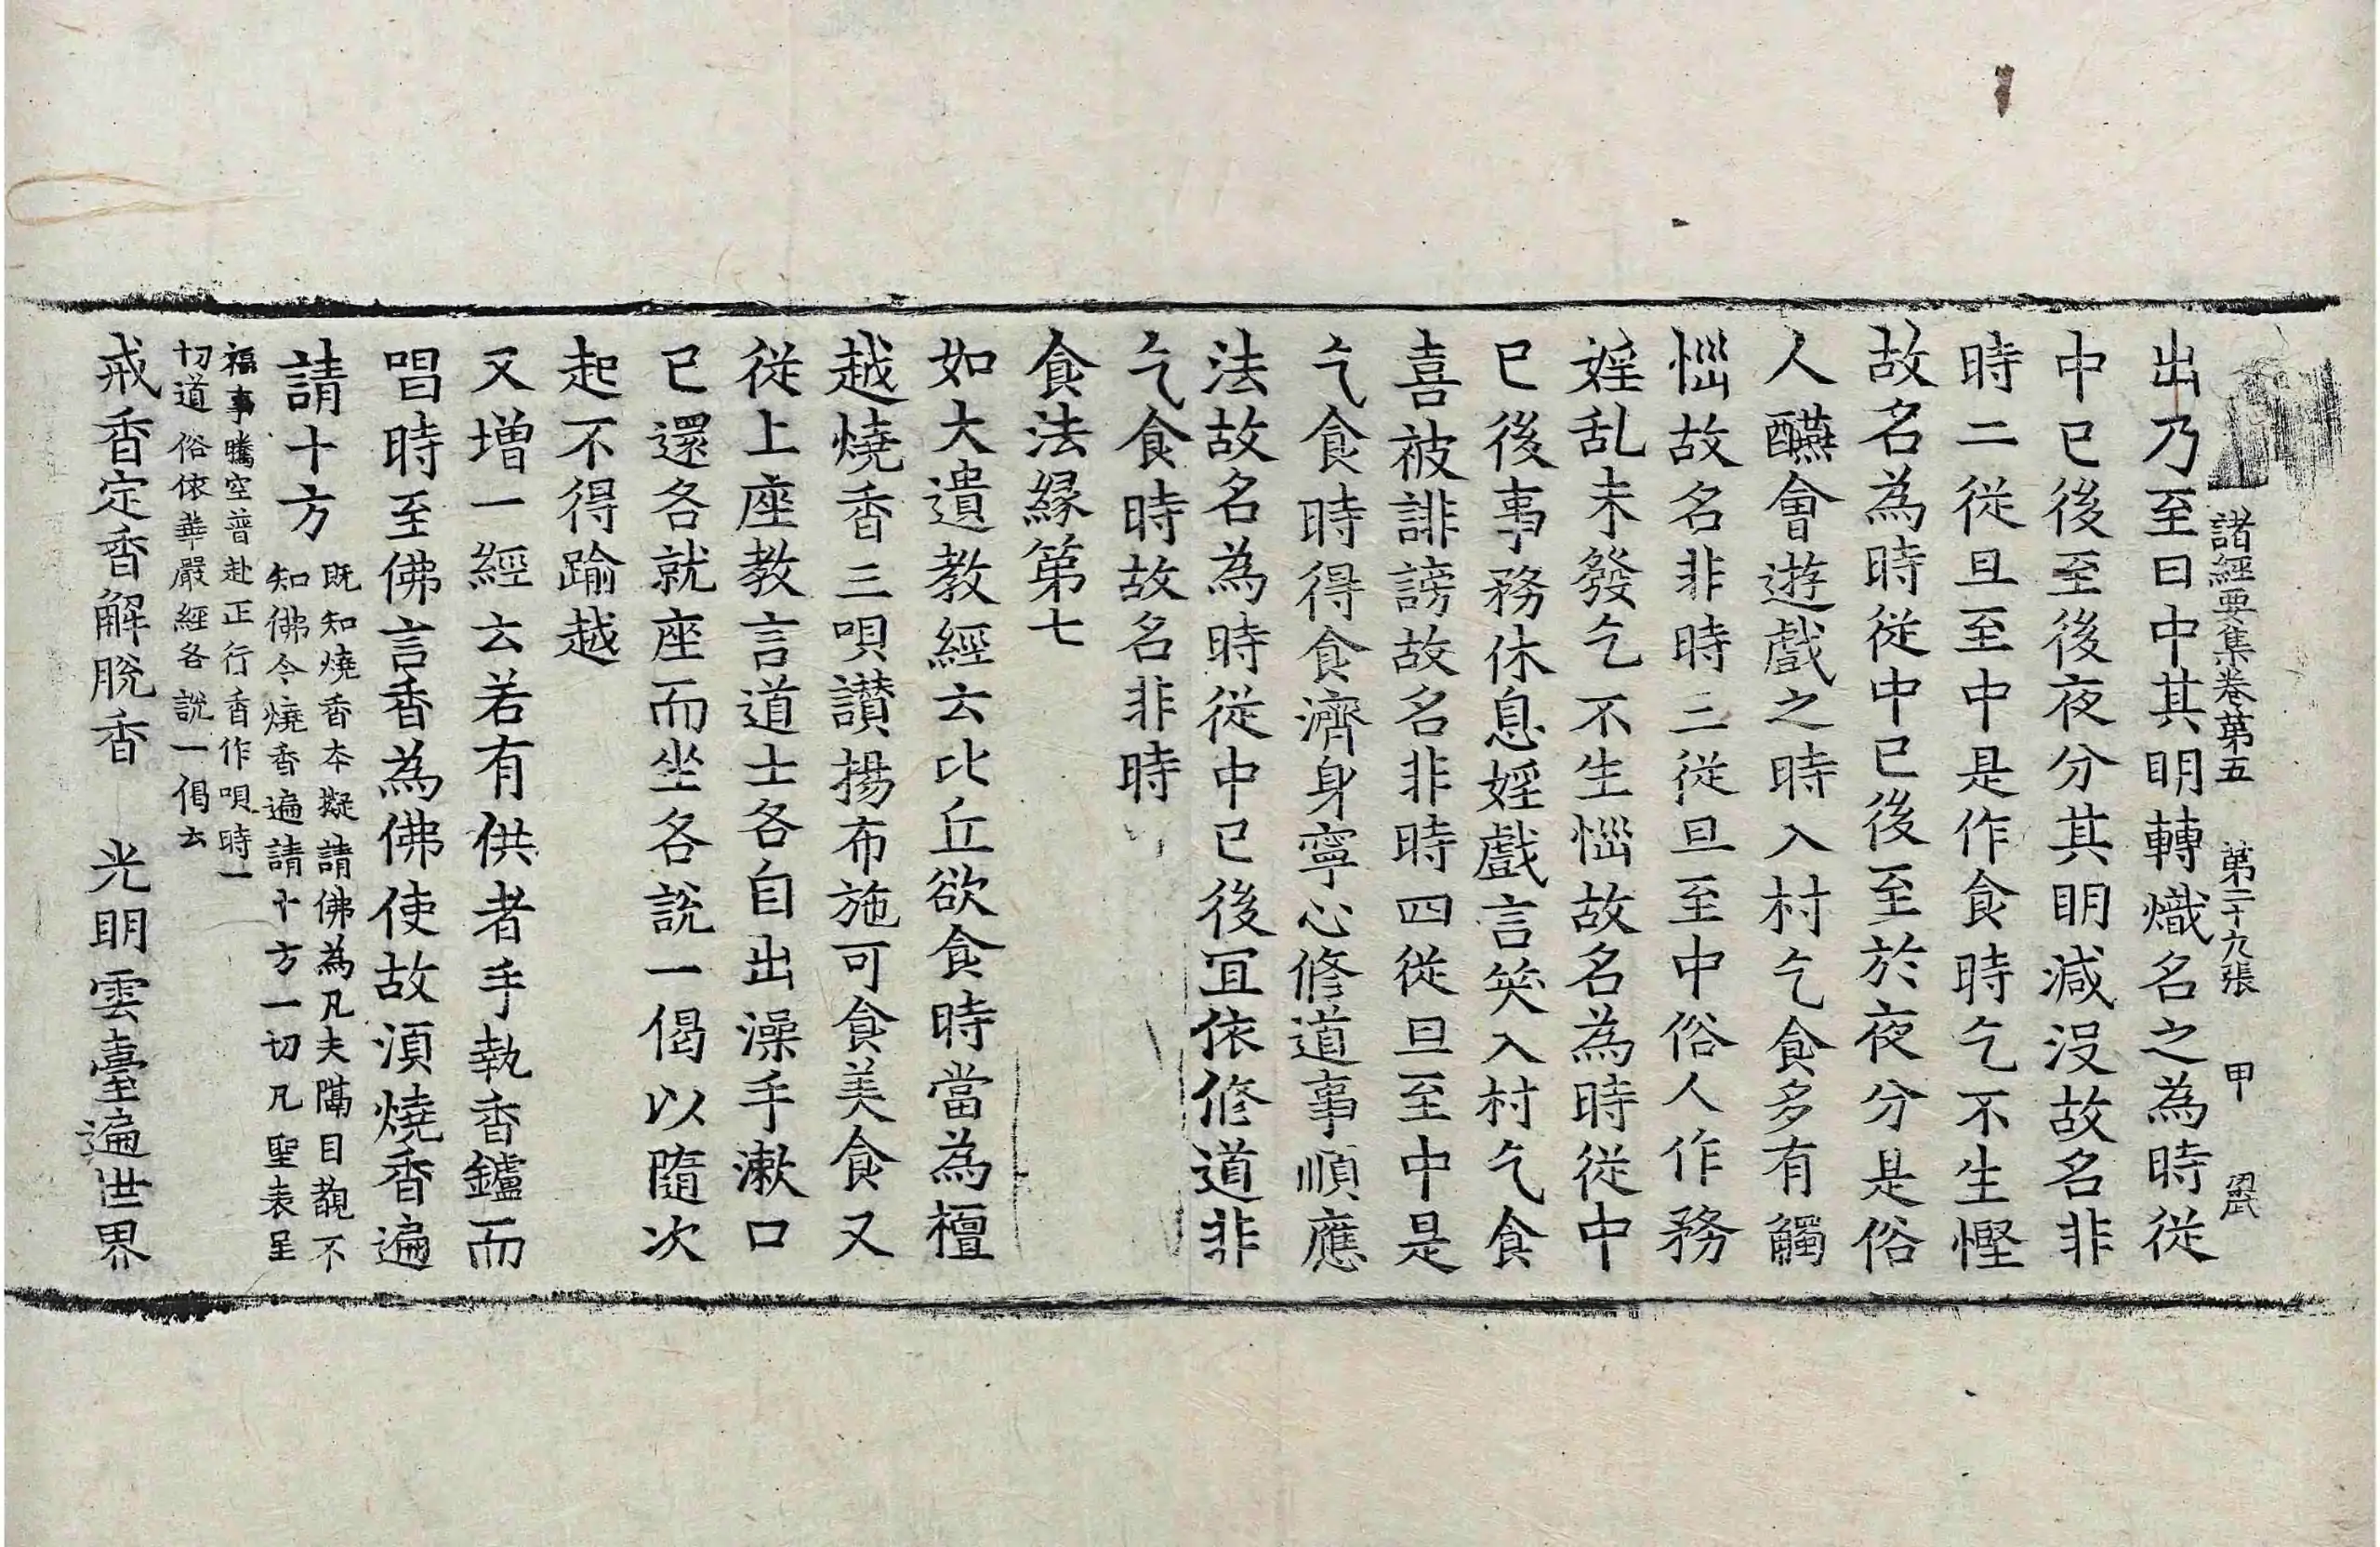 諸經要集卷第五 第二十九張 甲
出乃至日中其明轉熾名之為時從
中已後至後夜分其明減没故名非
時二從旦至中是作食時乞不生慳
故名為時從中已後至於夜分是俗
人醼會遊戲之時入村乞食多有觸
惱故名非時三從旦至中俗人作務
婬乱未發乞不生惱故名為時從中
已後事務休息婬戲言笑入村乞食
喜被誹謗故名非時四從旦至中是
乞食時得食濟身寧心修道事順應
法故名為時從中已後冝依修道非
乞食時故名非時
食法緣第七
如大遺教經云比丘欲食時當為檀
越燒香三唄讃揚布施可食美食又
從上座教言道士各自出澡手漱口
已還各就座而坐各說一偈以隨次
起不得踰越
又增一經云若有供者手執香鑪而
唱時至佛言香為佛使故湏燒香遍
請十方
既知燒香本擬請佛為凡夫隔目覩不
知佛令燒香遍請十方一切凡聖表呈
福事騰空普赴正行香作唄時一
切道俗依華嚴經各說一偈云
戒香定香解脫香 光明雲臺遍世界